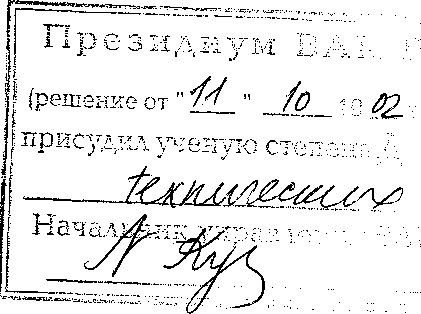 Президиум ВАК
(решение от "11" 10 1902
присудил ученую степень Д
технических
Начальник управления ВАК